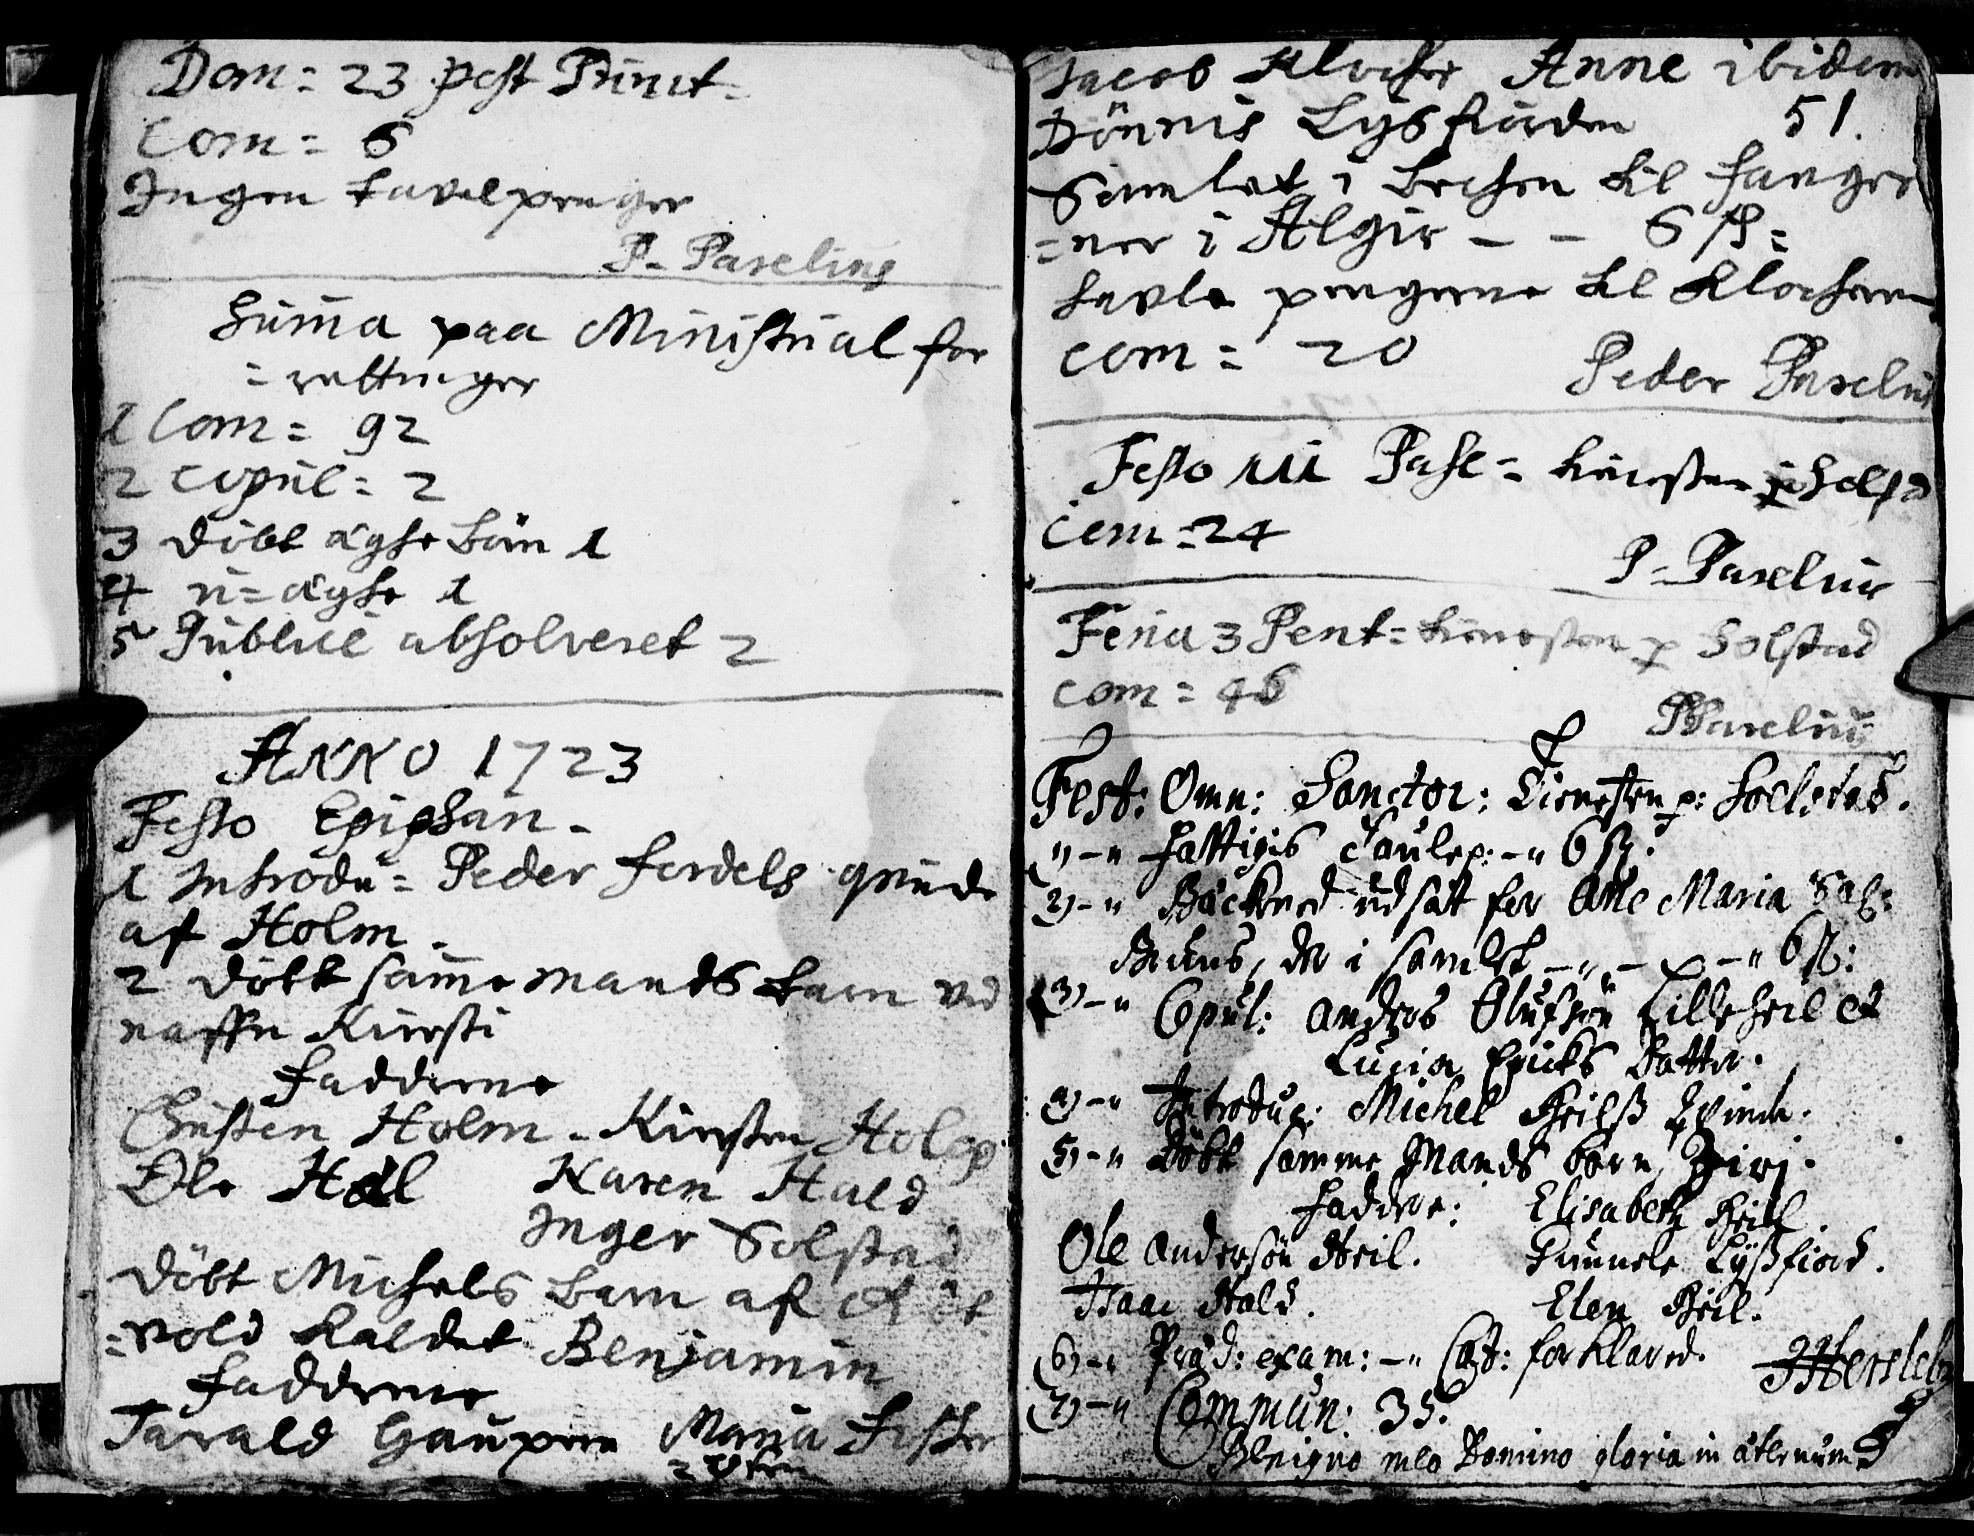 Dom: 23 post Trinit:
Com = 6
Ingen tavelpenger
P. Parelius
Summa paa Ministrial for
= rettinger
1 Com = 92
2 Copul = 2
3 døbt ægte børn 1
4 u = ægte 1
5 Publicè absolveret 2
ANNO 1723
Festo Epiphan.
1 Introdu = Peder qvinde
af Holm.
2 døbt samme mands barn ved
naffn Kirsti
Fadderne
Christen Holm. Kirsten
Ole Karen Hald
Inger Solstad
Døbt Michels barn af
= vold kaldet Benjamin
Fadderne
Tarald Maria
Jacob Klocker Anne ibidem
Dønnis Lysfiorden 51.
Samlet i til fanger
= ner i Algir - - 6 ß =
tavle pengerne til Klockeren
Com = 20 Peder Parelius
Festo III Pasc =
Com = 24
P. Parelius
Feria 3 Pent = tienesten p Solstad
Com = 46
P Parelius
Fest: Omn: Sanctor: Tienesten p: Soelstad.
1) -" Fattigis Taulep: -" 6 ß.
2) -" Bäckned udsat for Maria
der i samlet -"- -" 6 ß:
3) -" Copul: Anders Olufsøn et
Lucia Ericks Datter.
4) -" Introduc: Michel
5) -" Døbt samme Mands barn,
Faddere: Elisabeth
Ole Andersøn Gunnele Lyßfiord.
Isaac Hald. Elen
6) -" Præd: exam: -" Cat: forklared. Hersleb
7) -" Commun: 35.
Benigno meo Domino gloria in æternum